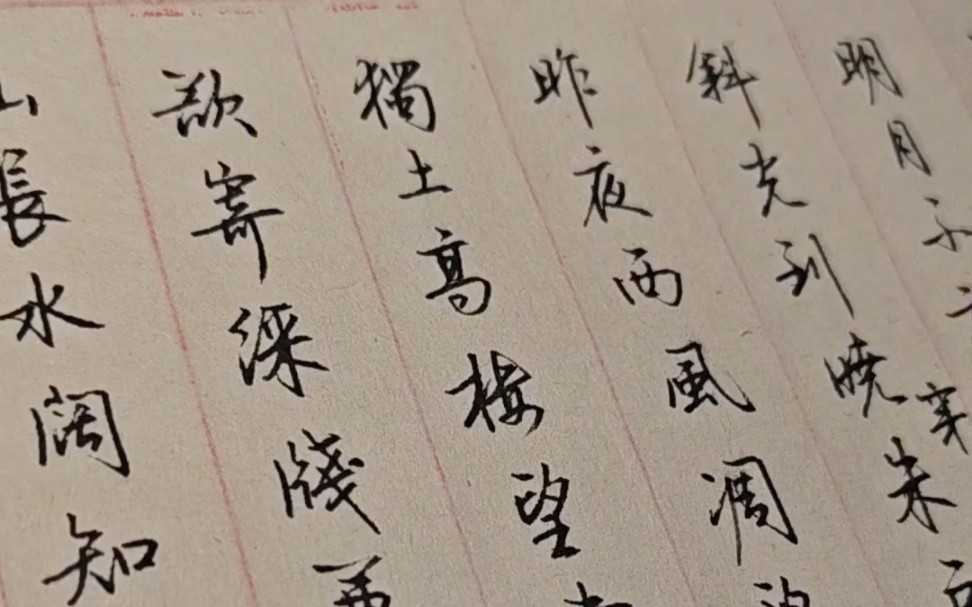 明月不
斜光到曉朱
昨夜西風凋
獨上高樓望
欲寄綵牋
山長水闊知